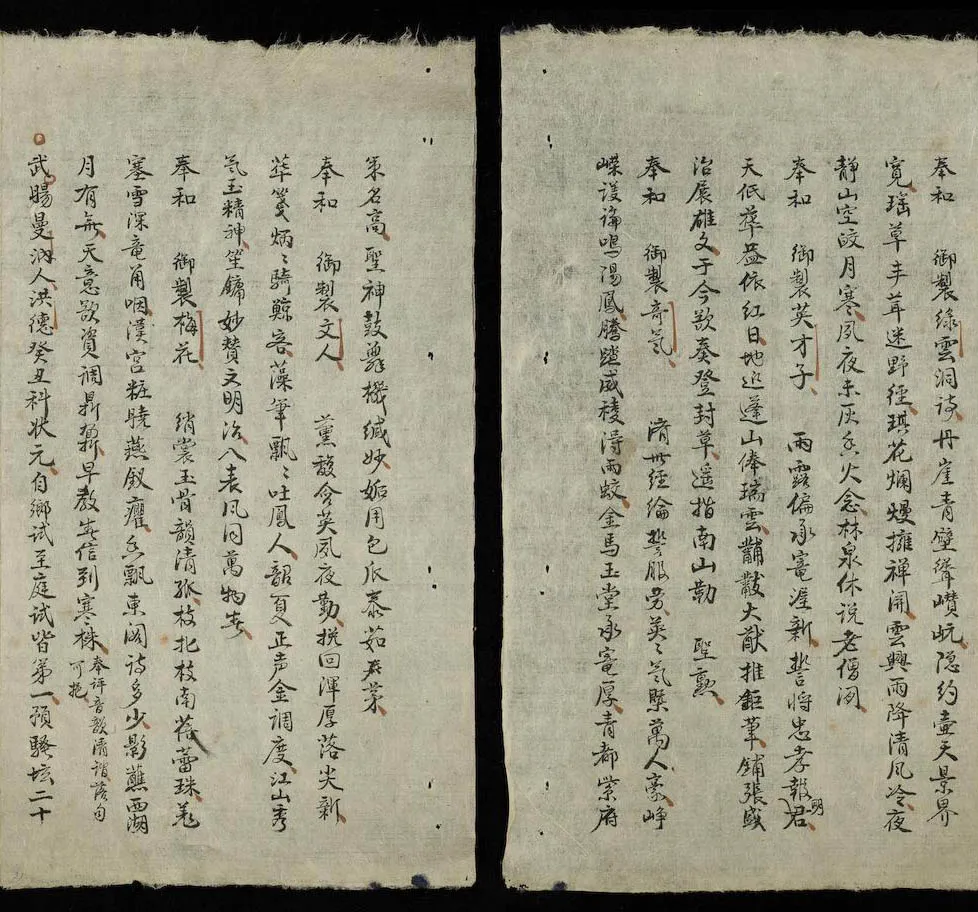 奉和 御製綠雲洞詩丹崖青壁聳巑岏隐約壷天景界
寛瑶草丰茸迷野徑琪花爛熳擁禅開雲興雨降清風冷夜
静山空皎月寒夙夜未灰香火念林泉休説老僧閑
奉和 御製英才子 雨露偏承寵渥新誓将忠孝報君明
天低華盖依紅日地近蓬山俸瑞雲黼黻大猷推鉅筆鋪張盛
治展雄文于今欲奏登封草遥指南山勒 聖勲
奉和 御製奇氣 済世経綸誉服劳英〻氣槩萬人豪崢
嶸謢論鳴陽鳳騰踏威稜得雨蛟金馬玉堂承寵厚青都紫府
策名高聖神鼓舞機緘妙姤用包瓜泰茹茅
奉和 御製文人 薰馥含英夙夜勤挽回渾厚落尖新
華箋炳〻騎鯨客藻筆飄〻吐鳳人韶夏正声金調度江山秀
氣玉精神笙鏞妙賛文明治八表凡同萬物春
奉和 御製梅花 綃裳玉骨韻清孤枝北枝南蓓蕾珠羌
塞雪深竜角咽漢宮粧暁燕釵癯香飄東閣詩多少影蘸西湖
月有無天意欲資調鼎鼐早教春信到寒株奉評音韻清謂落句可抱
武暘曼汭人洪德癸丑科状元自鄉試至庭試皆第一預騷坛二十